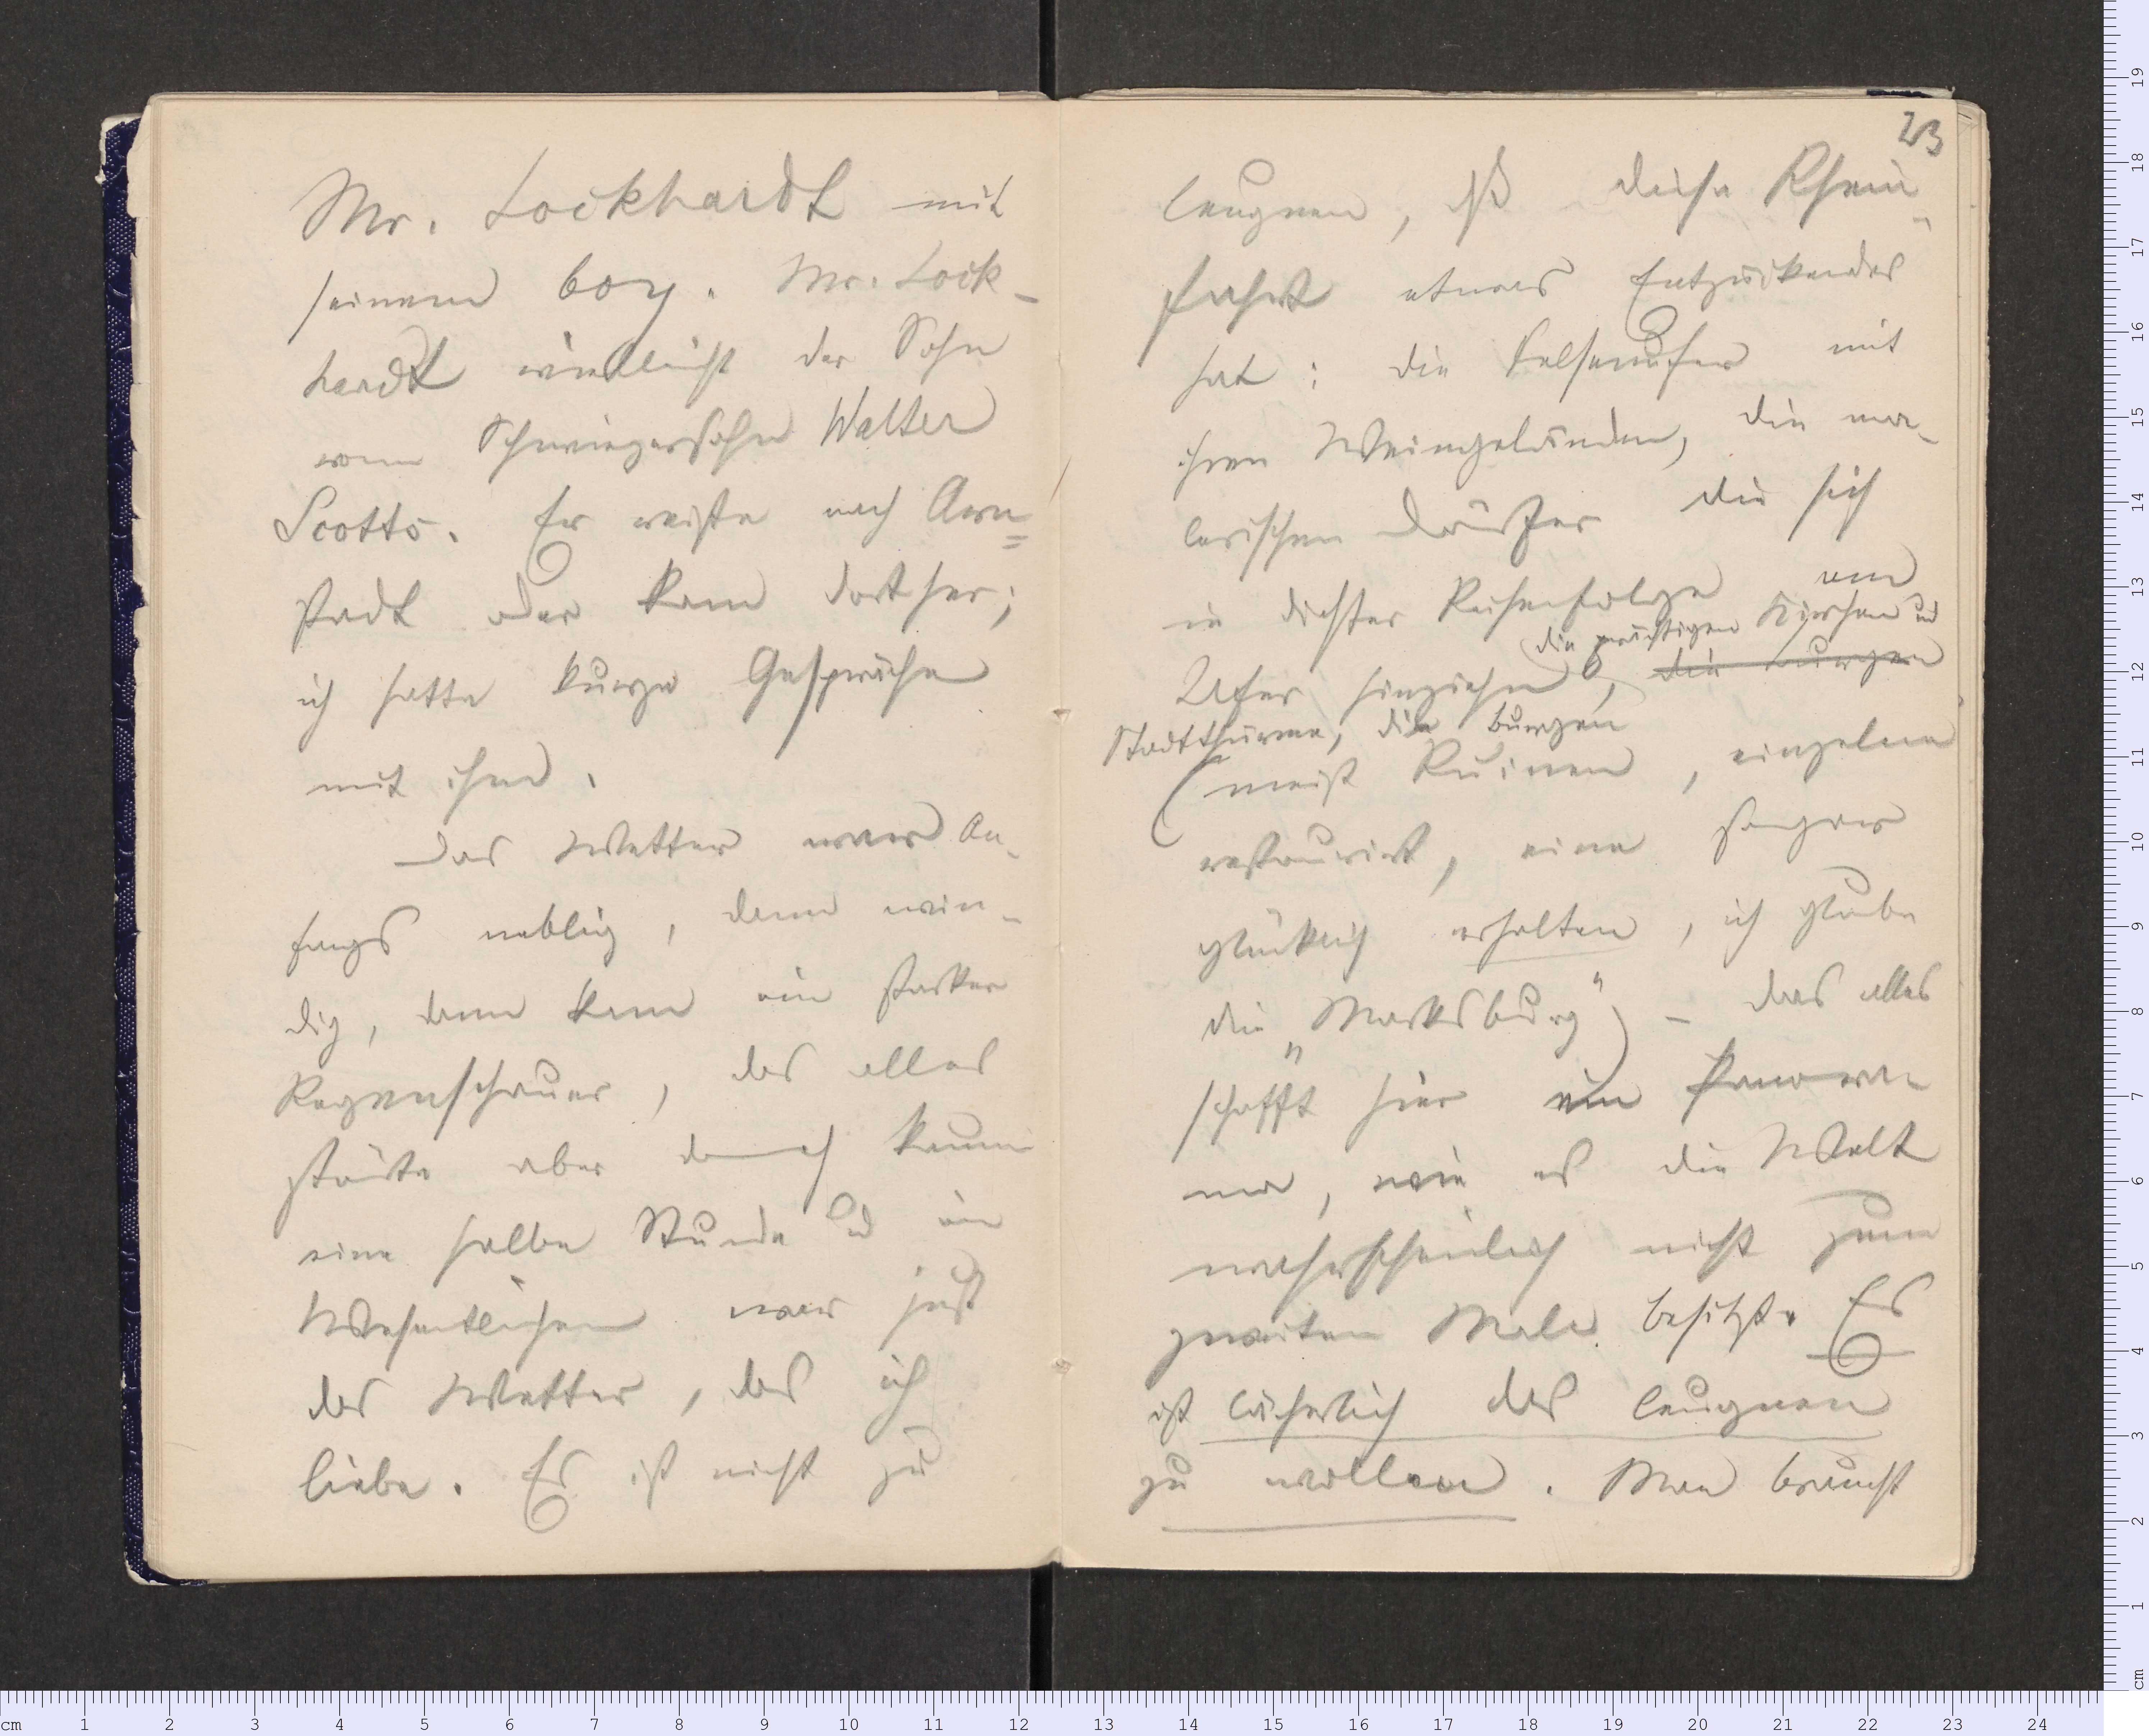 Mr. Lockhardt mit
seinem boy. Mr. Lock-
hardt vielleicht der Sohn
vom Schwiegersohn Walter
Scotts. Er reiste nach Arn=
stadt oder kam dorther;
ich hatte kurze Gespräche
mit ihm.
Das Wetter war An-
fangs neblig, dann win-
dig, dann kam ein starker
Regenschauer, das alles
störte aber danach kaum
eine halbe Stunde und im
Wesentlichen war just
das Wetter, das ich
liebe. Es ist nicht zu
23
leugnen, daß diese Rhein-
fahrt etwas Entzückendes
hat: die Felsenufer mit
ihren Weingeländen, die ma-
lerischen Dörfer die sich
in dichter Reihenfolge am
die prächtigen Kirchen und
Ufer hinziehn, die Burgen
Stadtthürme, die Burgen
(meist Ruinen, einzelne
restaurirt, eine sogar
glücklich erhalten, ich glaube
die „Marksburg") – das alles
schafft hier ein Panora-
ma, wie es die Welt
wahrscheinlich nicht zum
zweiten Male besitzt. Es
ist lächerlich das leugnen
zu wollen. Man braucht